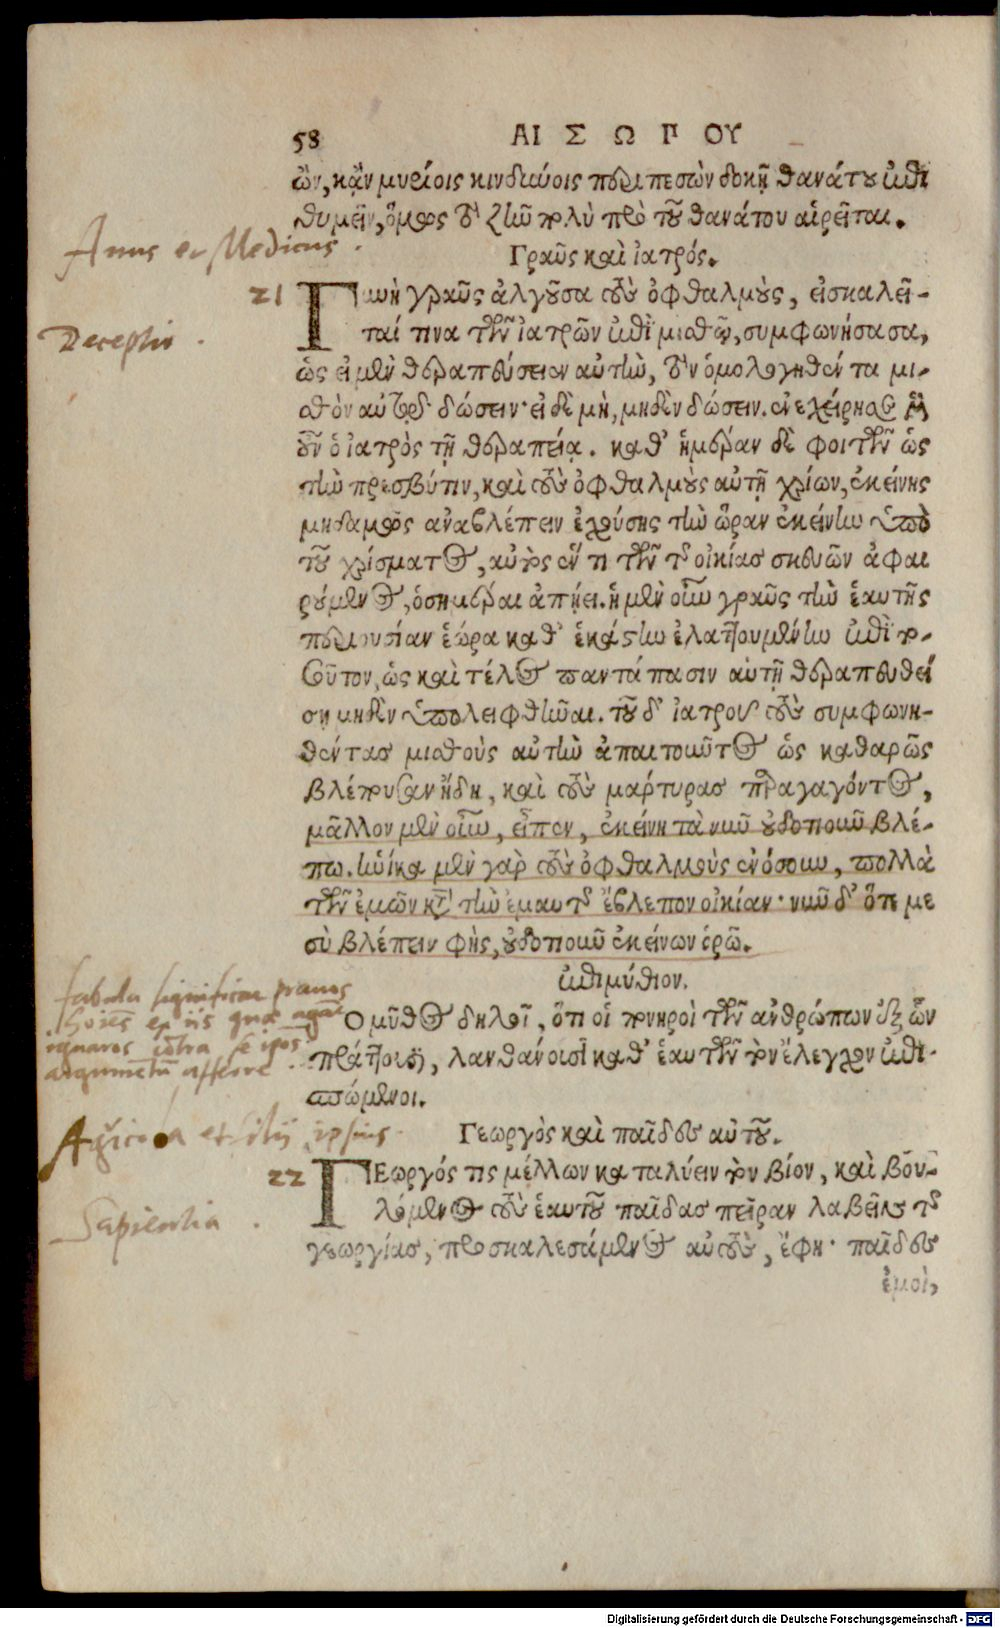 58 ΑΙΣΩΠΟΥ
ὢν, κᾂν μυρίοις κινδύνοις περιπεσὼν δοκῇ θανάτου ἐπι
θυμεῖν, ὅμως τὸ ζῆν πολὺ πρὸ τοῦ θανάτου αἱρεῖται.
Anus et Medicus.
Γραῦς καὶ ἰατρός.
21 Γυνὴ γραῦς ἀλγοῦσα τοὺς ὀφθαλμοὺς, εἰσκαλεῖ-
Deceptio.
ταί τινα τῶν ἰατρῶν ἐπὶ μισθῷ, συμφωνήσασα,
ὡς εἰ μὲν θεραπεύσειεν αὐτὴν, τὸν ὁμολογηθέντα μι-
σθὸν αὐτῷ δώσειν· εἰ δὲ μὴ, μηδὲν δώσειν. ἐνεχείρησε μὲν
οὖν ὁ ἰατρὸς τῇ θεραπείᾳ. καθ' ἡμέραν δὲ φοιτῶν ὡς
τὴν πρεσβύτιν, καὶ τοὺς ὀφθαλμοὺς αὐτῇ χρίων, ἐκείνης
μηδαμῶς ἀναβλέπειν ἐχούσης τὴν ὥραν ἐκείνην ὑπὸ
τοῦ χρίσματος, αὐτὸς ἕν τι τῶν τῆς οἰκίας σκευῶν ἀφαι
ρούμενος, ὁσημέραι ἀπῄει. ἡ μὲν οὖν γραῦς τὴν ἑαυτῆς
περιουσίαν ἑώρα καθ' ἑκάστην ἐλαττουμένην ἐπὶ το-
σοῦτον, ὡς καὶ τέλος παντάπασιν αὐτῇ θεραπευθεί
σῃ μηδὲν ὑπολειφθῆναι. τοῦ δ' ἰατροῦ τοὺς συμφωνη-
θέντας μισθοὺς αὐτὴν ἀπαιτοῦντος ὡς καθαρῶς
βλέπουσαν ἤδη, καὶ τοὺς μάρτυρας παραγαγόντος,
μᾶλλον μὲν οὖν, εἶπεν, ἐκείνη τὰ νῦν οὐδοτιοῦν βλέ-
πω. ἡνίκα μὲν γὰρ τοὺς ὀφθαλμοὺς ἐνόσουν, πολλὰ
τῶν ἐμῶν κατὰ τὴν ἐμαυτῆς ἔβλεπον οἰκίαν· νῦν δ' ὅτε με
σὺ βλέπειν φῂς, οὐδοτιοῦν ἐκείνων ὁρῶ.
ἐπιμύθιον.
fabula significat pravos
hoīes ex iis quæ agāt
ignaros cōtra se ipos
argumētū afferre.
Ο μῦθος δηλοῖ, ὅτι οἱ πονηροὶ τῶν ἀνθρώπων ἐξ ὧν
πράττουσι, λανθάνουσι καθ' ἑαυτῶν τὸν ἔλεγχον ἐπι-
σπώμενοι.
Agricola et filii ipsius.
Γεωργὸς καὶ παῖδες αὐτοῦ.
22 ΓΕωργός τις μέλλων καταλύειν τὸν βίον, καὶ βου-
Sapientia.
λόμενος τοὺς ἑαυτοῦ παῖδας πεῖραν λαβεῖν τῆς
γεωργίας, προσκαλεσάμενος αὐτοὺς, ἔφη· παῖδες
ἐμοὶ,
Digitalisierung gefördert durch die Deutsche Forschungsgemeinschaft - DFG